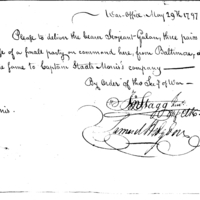 War-Office May 29th 1797
Please to deliver the bearer Serjeant Galon, three pairs
of a small party on command here, from Baltimore,
the same to Captain Staats Morris's company —
By Order of the Secy of War —
Jn Stagg Junr
Samuel Hodgdon